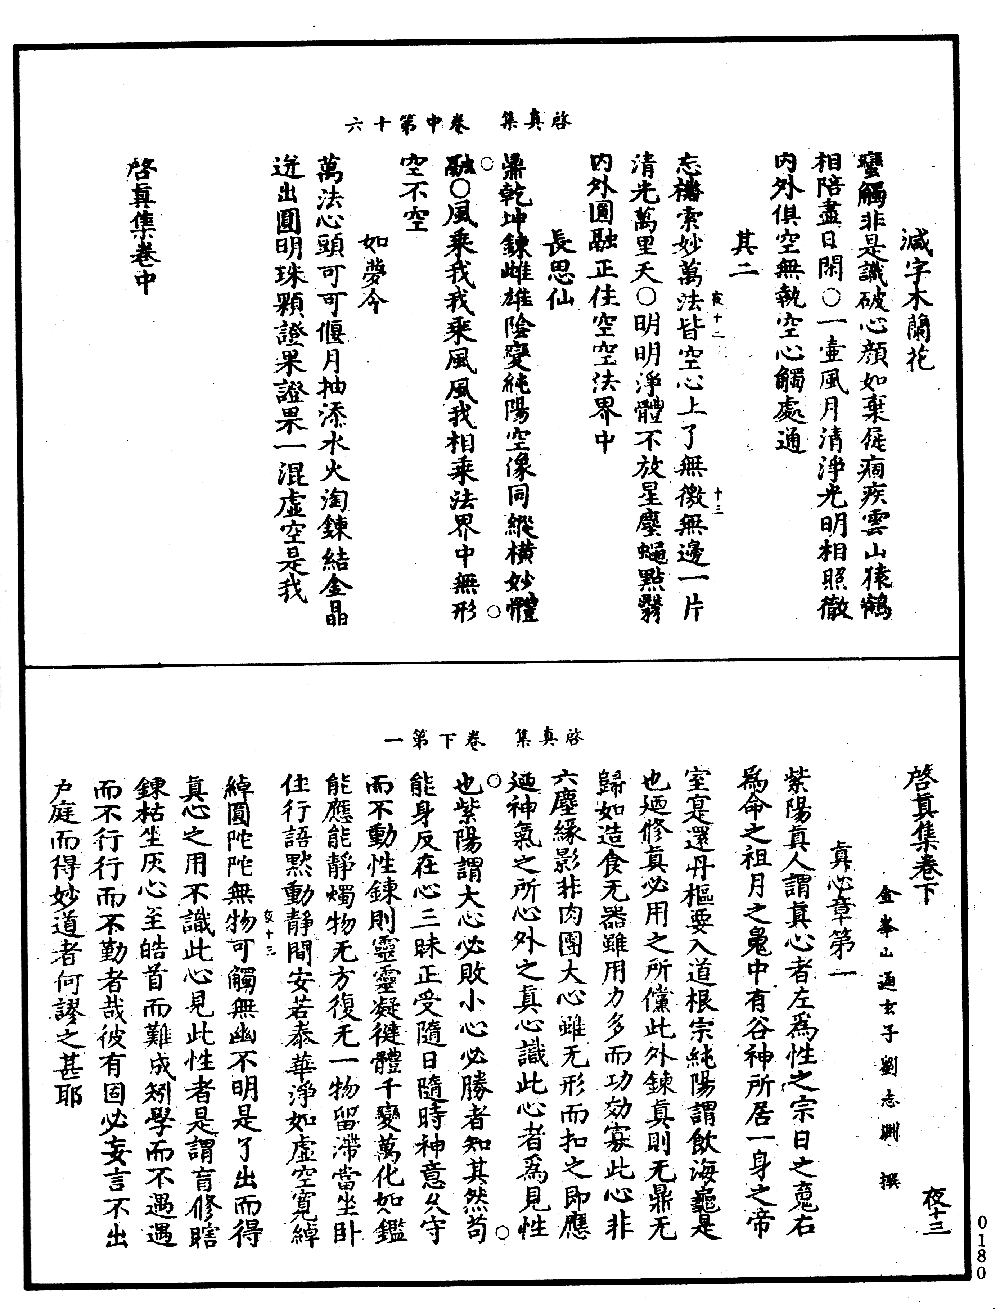 啓真集　卷中第十六
減字木蘭花
蠻觸非是識破心顏如棄屣痼疾雲山猿鶴
相陪盡日閑○一壷風月清淨光明相照徹
內外俱空無執空心觸處通
其二
忘機索妙萬法皆空心上了無微無邊一片
夜十二
十三
清光萬里天○明明淨體不放星塵蠅點翳
內外圓融正住空空法界中
長思仙
鼎乾坤鍊雌雄陰變純陽空像同縱橫妙體
融○風乘我我乘風風我相乘法界中無形
空不空
如夢令
萬法心頭可可偃月抽添水火淘鍊結金晶
迸出圓明珠顆證果證果一混虛空是我
啓真集卷中
啓真集　卷下第一
啓真集卷下
夜十三
金峯山通玄子劉志淵　撰
真心章第一
紫陽真人謂真心者左為性之宗日之䰟右
為命之祖月之䰟中有谷神所居一身之帝
室寔還丹樞要入道根宗純陽謂飲海龜是
也廼修真必用之所儻此外鍊真則无鼎无
歸如造食无器雖用力多而功効寡此心非
六塵緣影非肉團大心雖无形而扣之即應
廼神氣之所心外之真心識此心者為見性
也紫陽謂大心必敗小心必勝者知其然苟
能身反在心三昧正受隨日隨時神意久守
而不動性鍊則靈靈凝徤體千變萬化如鑑
能應能靜燭物无方復无一物留滯當坐卧
住行語默動靜間安若泰華淨如虛空寬綽
綽圓陀陀無物可觸無幽不明是了出而得
夜十三
真心之用不識此心見此性者是謂盲修瞎
鍊枯坐灰心至皓首而難成矧學而不遇遇
而不行行而不勤者哉彼有固必妄言不出
户庭而得妙道者何謬之甚耶
0180